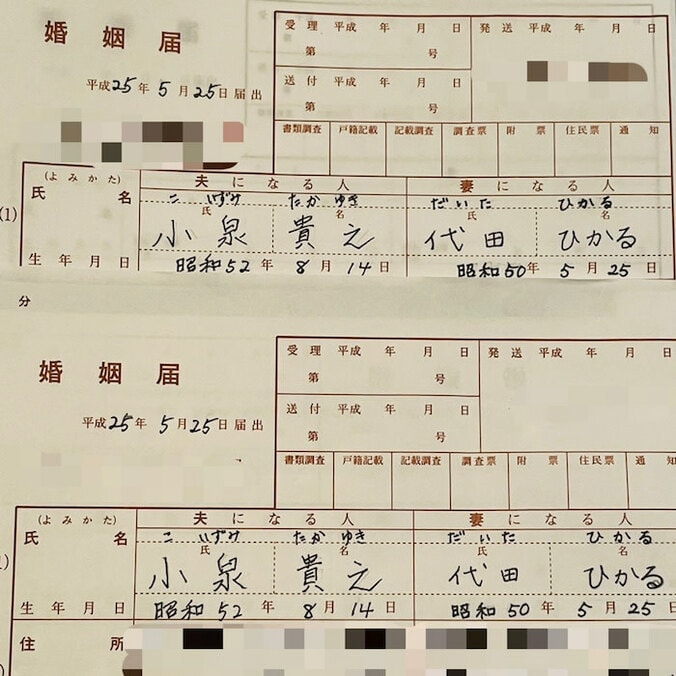 婚姻届
受理 平成 年 月 日
発送 平成 年 月 日
第 号
平成25年5月25日届出
送付 平成 年 月 日
第 号
書類調査 戸籍記載 記載調査 調査票 附票 住民票 通知
(よみかた) 夫になる人 妻になる人
こいずみ たかゆき だいた ひかる
(1) 氏名 氏 名 氏 名
小泉 貴之 代田 ひかる
生年月日 昭和52年8月14日 昭和50年5月25日
分
婚姻届
受理 平成 年 月 日
発送 平成 年 月 日
第 号
平成25年5月25日届出
送付 平成 年 月 日
第 号
書類調査 戸籍記載 記載調査 調査票 附票 住民票 通知
(よみかた) 夫になる人 妻になる人
こいずみ たかゆき だいた ひかる
氏名 氏 名 氏 名
小泉 貴之 代田 ひかる
生年月日 昭和52年8月14日 昭和50年5月25日
住所